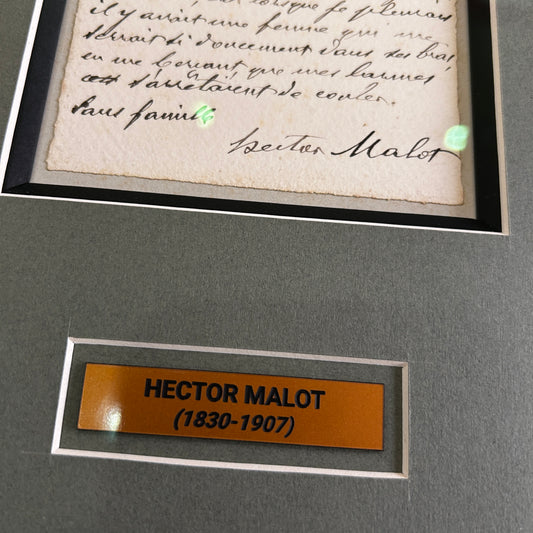 lorsque je pleurais
il y avait une femme qui me
serrait si doucement dans ses bras,
en me berçant que mes larmes
s'arrêtaient de couler.
Sans famille
Hector Malot
HECTOR MALOT
(1830-1907)